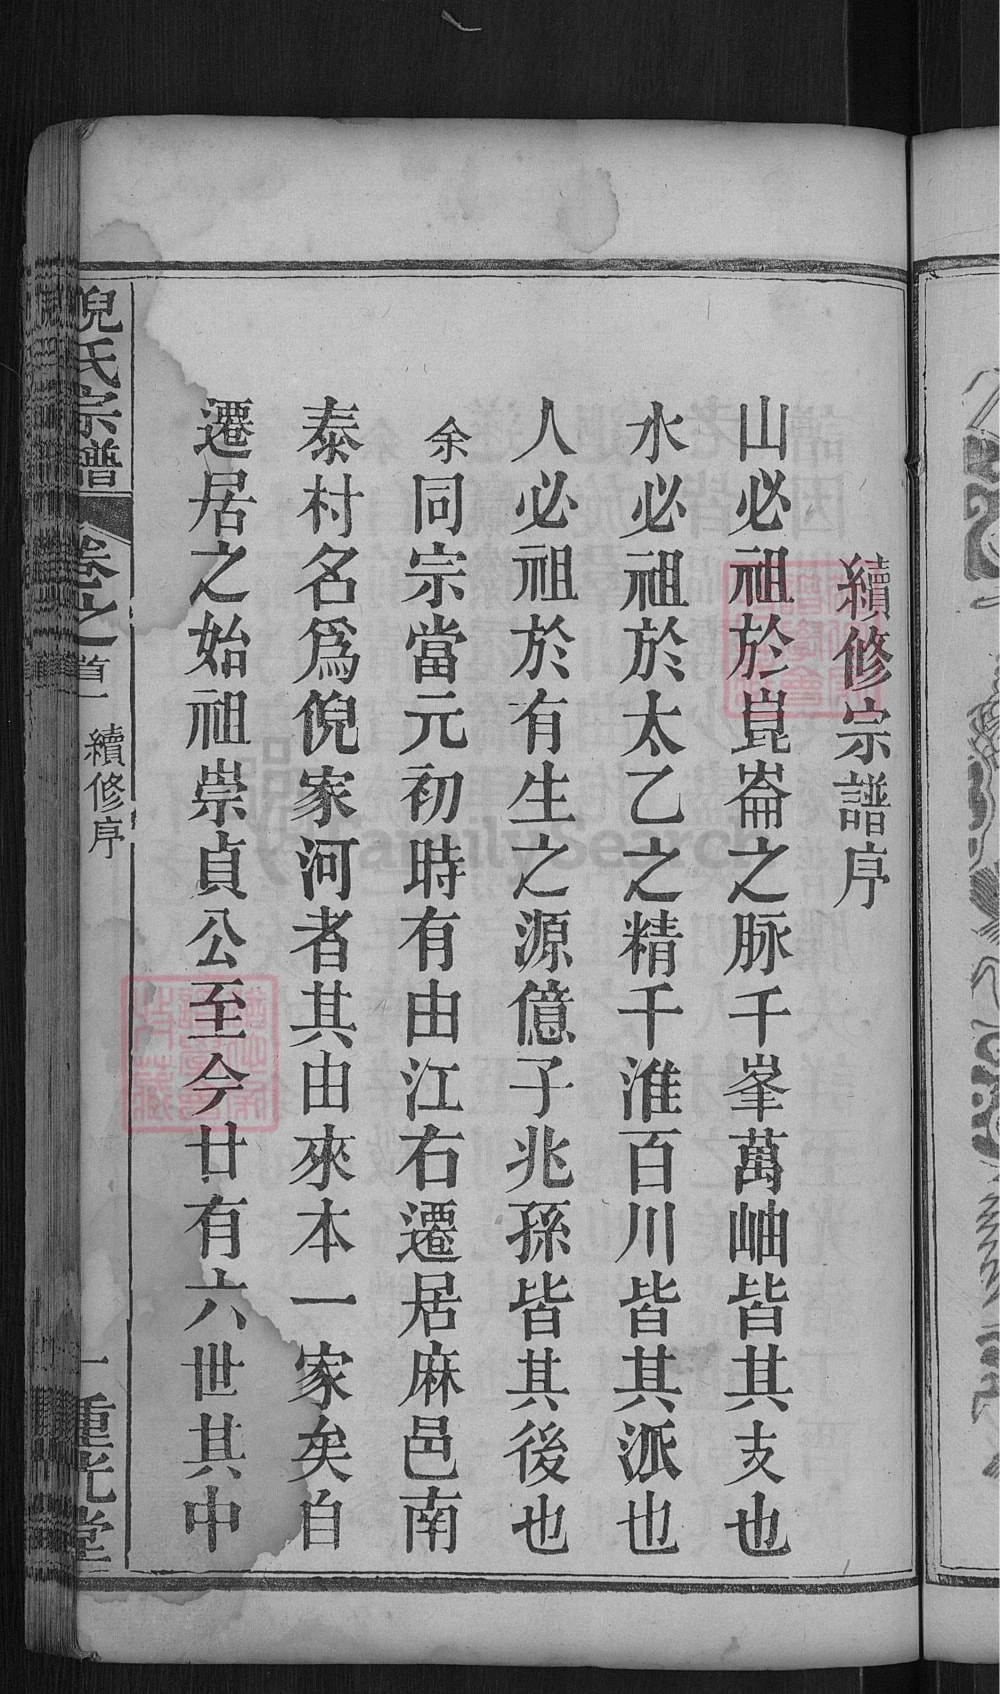 續修宗譜序
山必祖於崑崙之脉千峯萬岫皆其支也
水必祖於太乙之精千淮百川皆其派也
人必祖於有生之源億子兆孫皆其後也
余同宗當元初時有由江右遷居麻邑南
泰村名爲倪家河者其由來本一家矣自
遷居之始祖崇貞公至今廿有六世其中
倪氏宗譜 卷之首 續修序 一 重光堂
FamilySearch